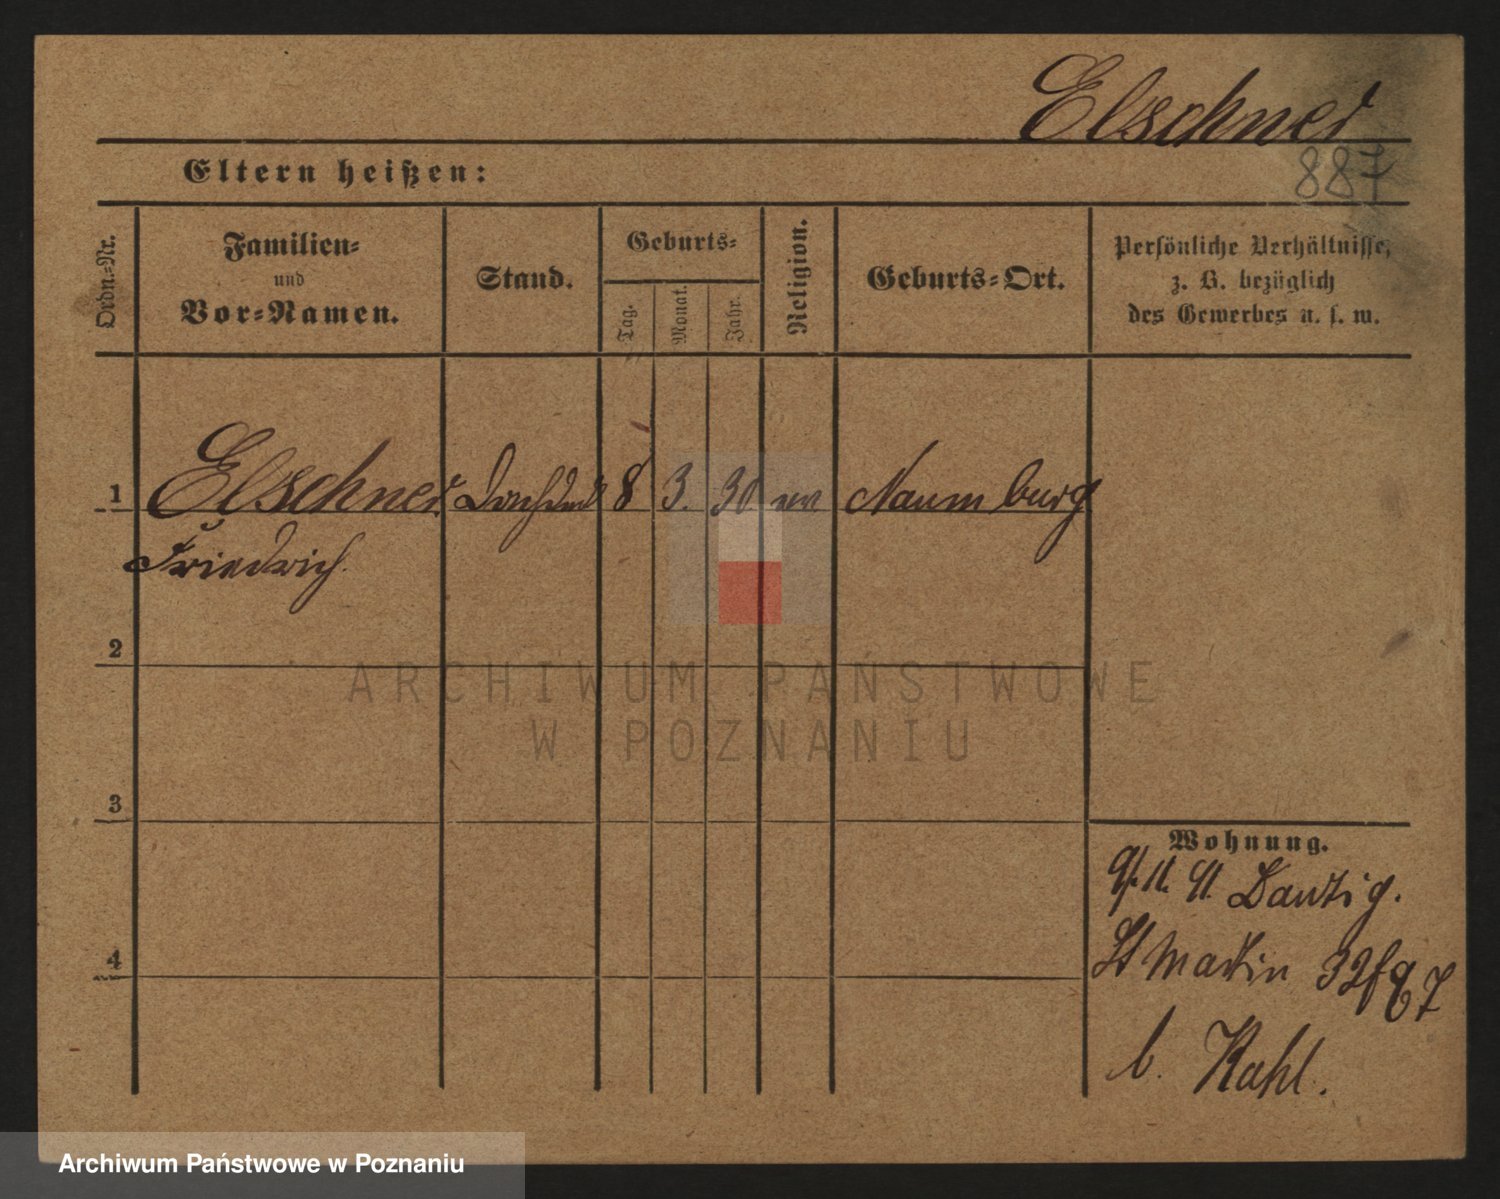 Elschner
887
Eltern heißen:
Ordn.=Nr.
Familien=
und
Vor=Namen.
Stand.
Geburts=
Tag.
Monat.
Jahr.
Religion.
Geburts=Ort.
Persönliche Verhältnisse,
z. B. bezüglich
des Gewerbes u. s. w.
1 Elschner 8 3. 30 Naumburg
Friedrich.
2
3
4
Wohnung.
Danzig.
St Martin 32
b. Kahl.
ARCHIWUM PAŃSTWOWE
W POZNANIU
Archiwum Państwowe w Poznaniu